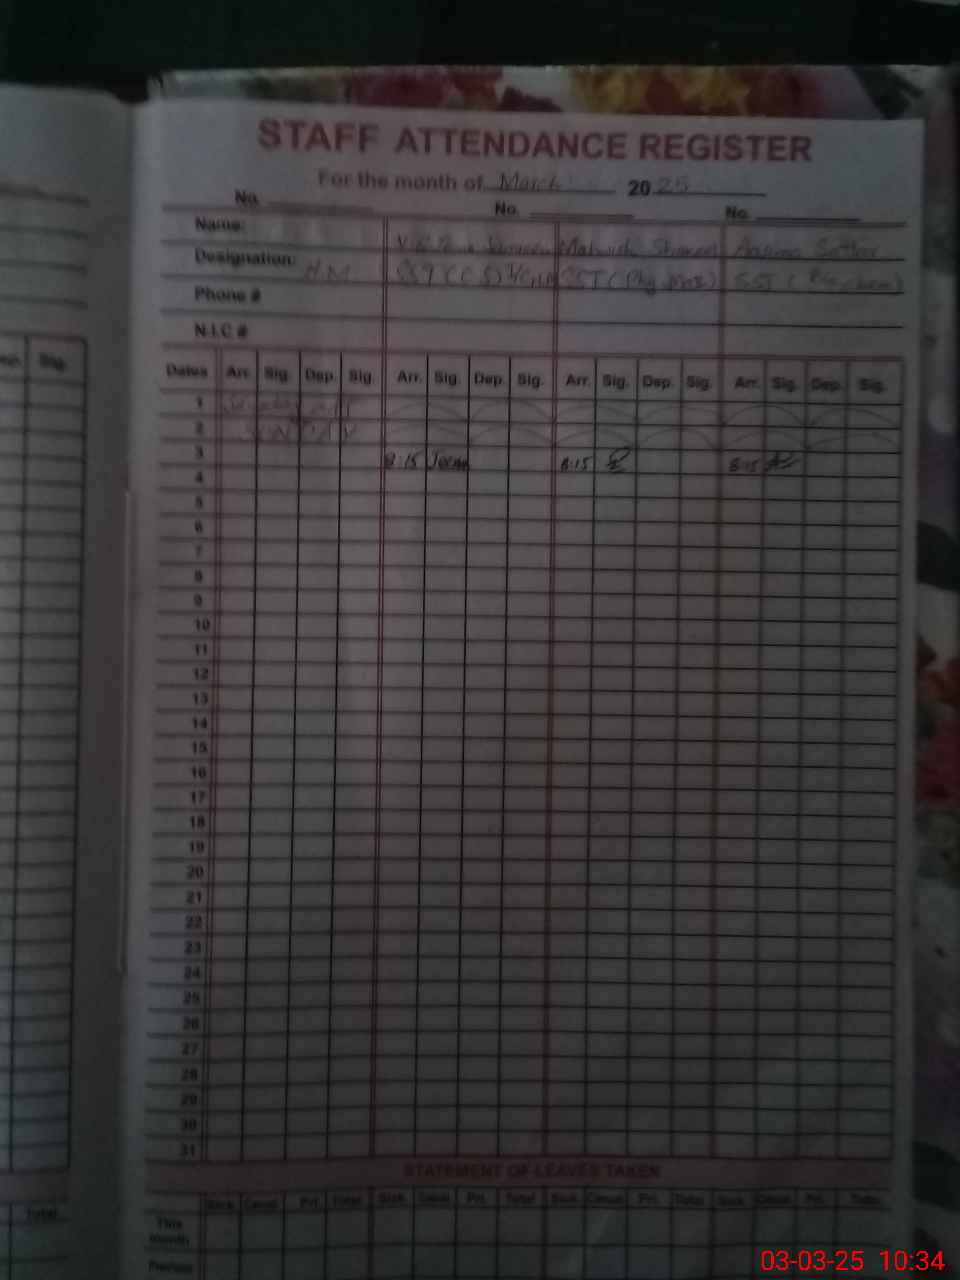 STAFF ATTENDANCE REGISTER
For the month of March 2025
No. No. No.
Name:
Designation: H.M SST (CS) I/C HM SST (Phy, Mat) SST ( Bio-chem)
Phone #
N.I.C #
Dates Arr. Sig. Dep. Sig. Arr. Sig. Dep. Sig. Arr. Sig. Dep. Sig. Arr. Sig. Dep. Sig.
1
2 SUNDAY
3 8:15 8:15 8:15
4
5
6
7
8
9
10
11
12
13
14
15
16
17
18
19
20
21
22
23
24
25
26
27
28
29
30
31
STATEMENT OF LEAVES TAKEN
Sick. Casual. Pri. Total. Sick. Casual. Pri. Total. Sick. Casual. Pri. Total. Sick. Casual. Pri. Total.
This
month
Previous
Sig.
Total.
03-03-25 10:34